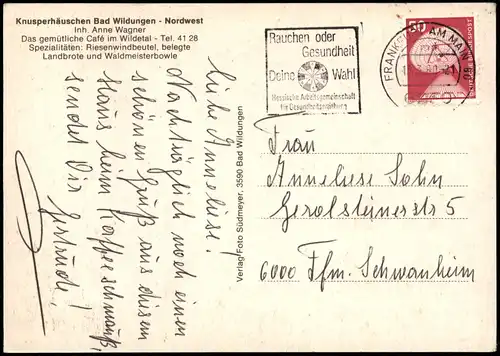 Knusperhäuschen Bad Wildungen - Nordwest
Inh. Anne Wagner
Das gemütliche Café im Wildetal - Tel. 41 28
Spezialitäten: Riesenwindbeutel, belegte
Landbrote und Waldmeisterbowle
Liebe Anneliese!
Nachträglich noch einen
schönen Gruß aus diesem
Haus beim Kaffeeschmauß,
sendet Dir Gertrude,
Verlag/Foto Südmeyer, 3590 Bad Wildungen
Rauchen oder
Gesundheit
Deine Wahl
Hessische Arbeitsgemeinschaft
für Gesundheitserziehung
FRANKFURT AM MAIN
50
Frau
Anneliese Sohn
Gerolsteinerstr 5
6000 Ffm. Schwanheim